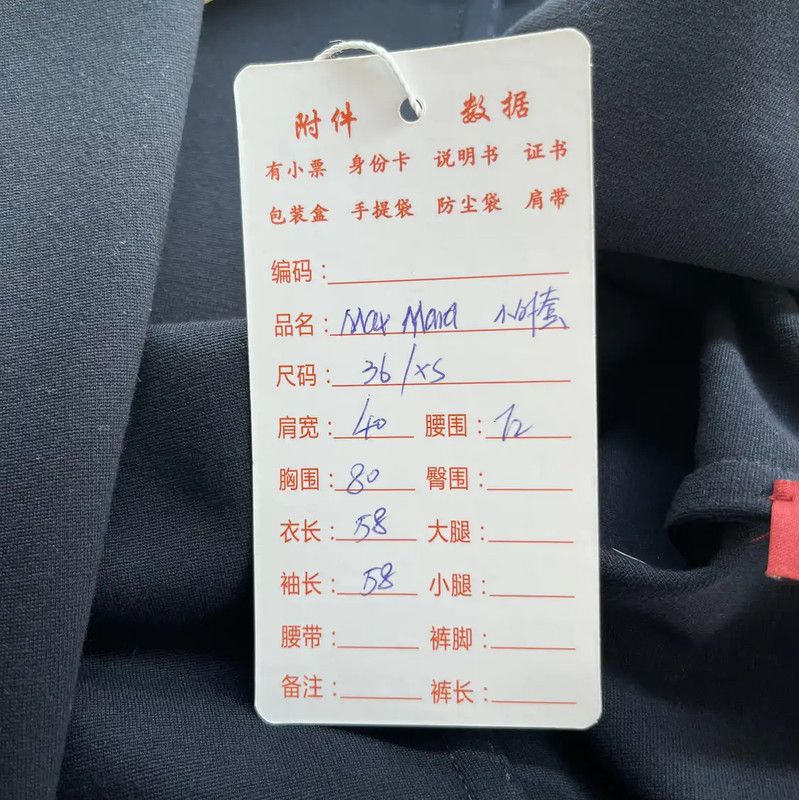 附件 数据
有小票 身份卡 说明书 证书
包装盒 手提袋 防尘袋 肩带
编码：
品名：Max Mara 小外套
尺码：36/XS
肩宽：40 腰围：72
胸围：80 臀围：
衣长：58 大腿：
袖长：58 小腿：
腰带： 裤脚：
备注： 裤长：